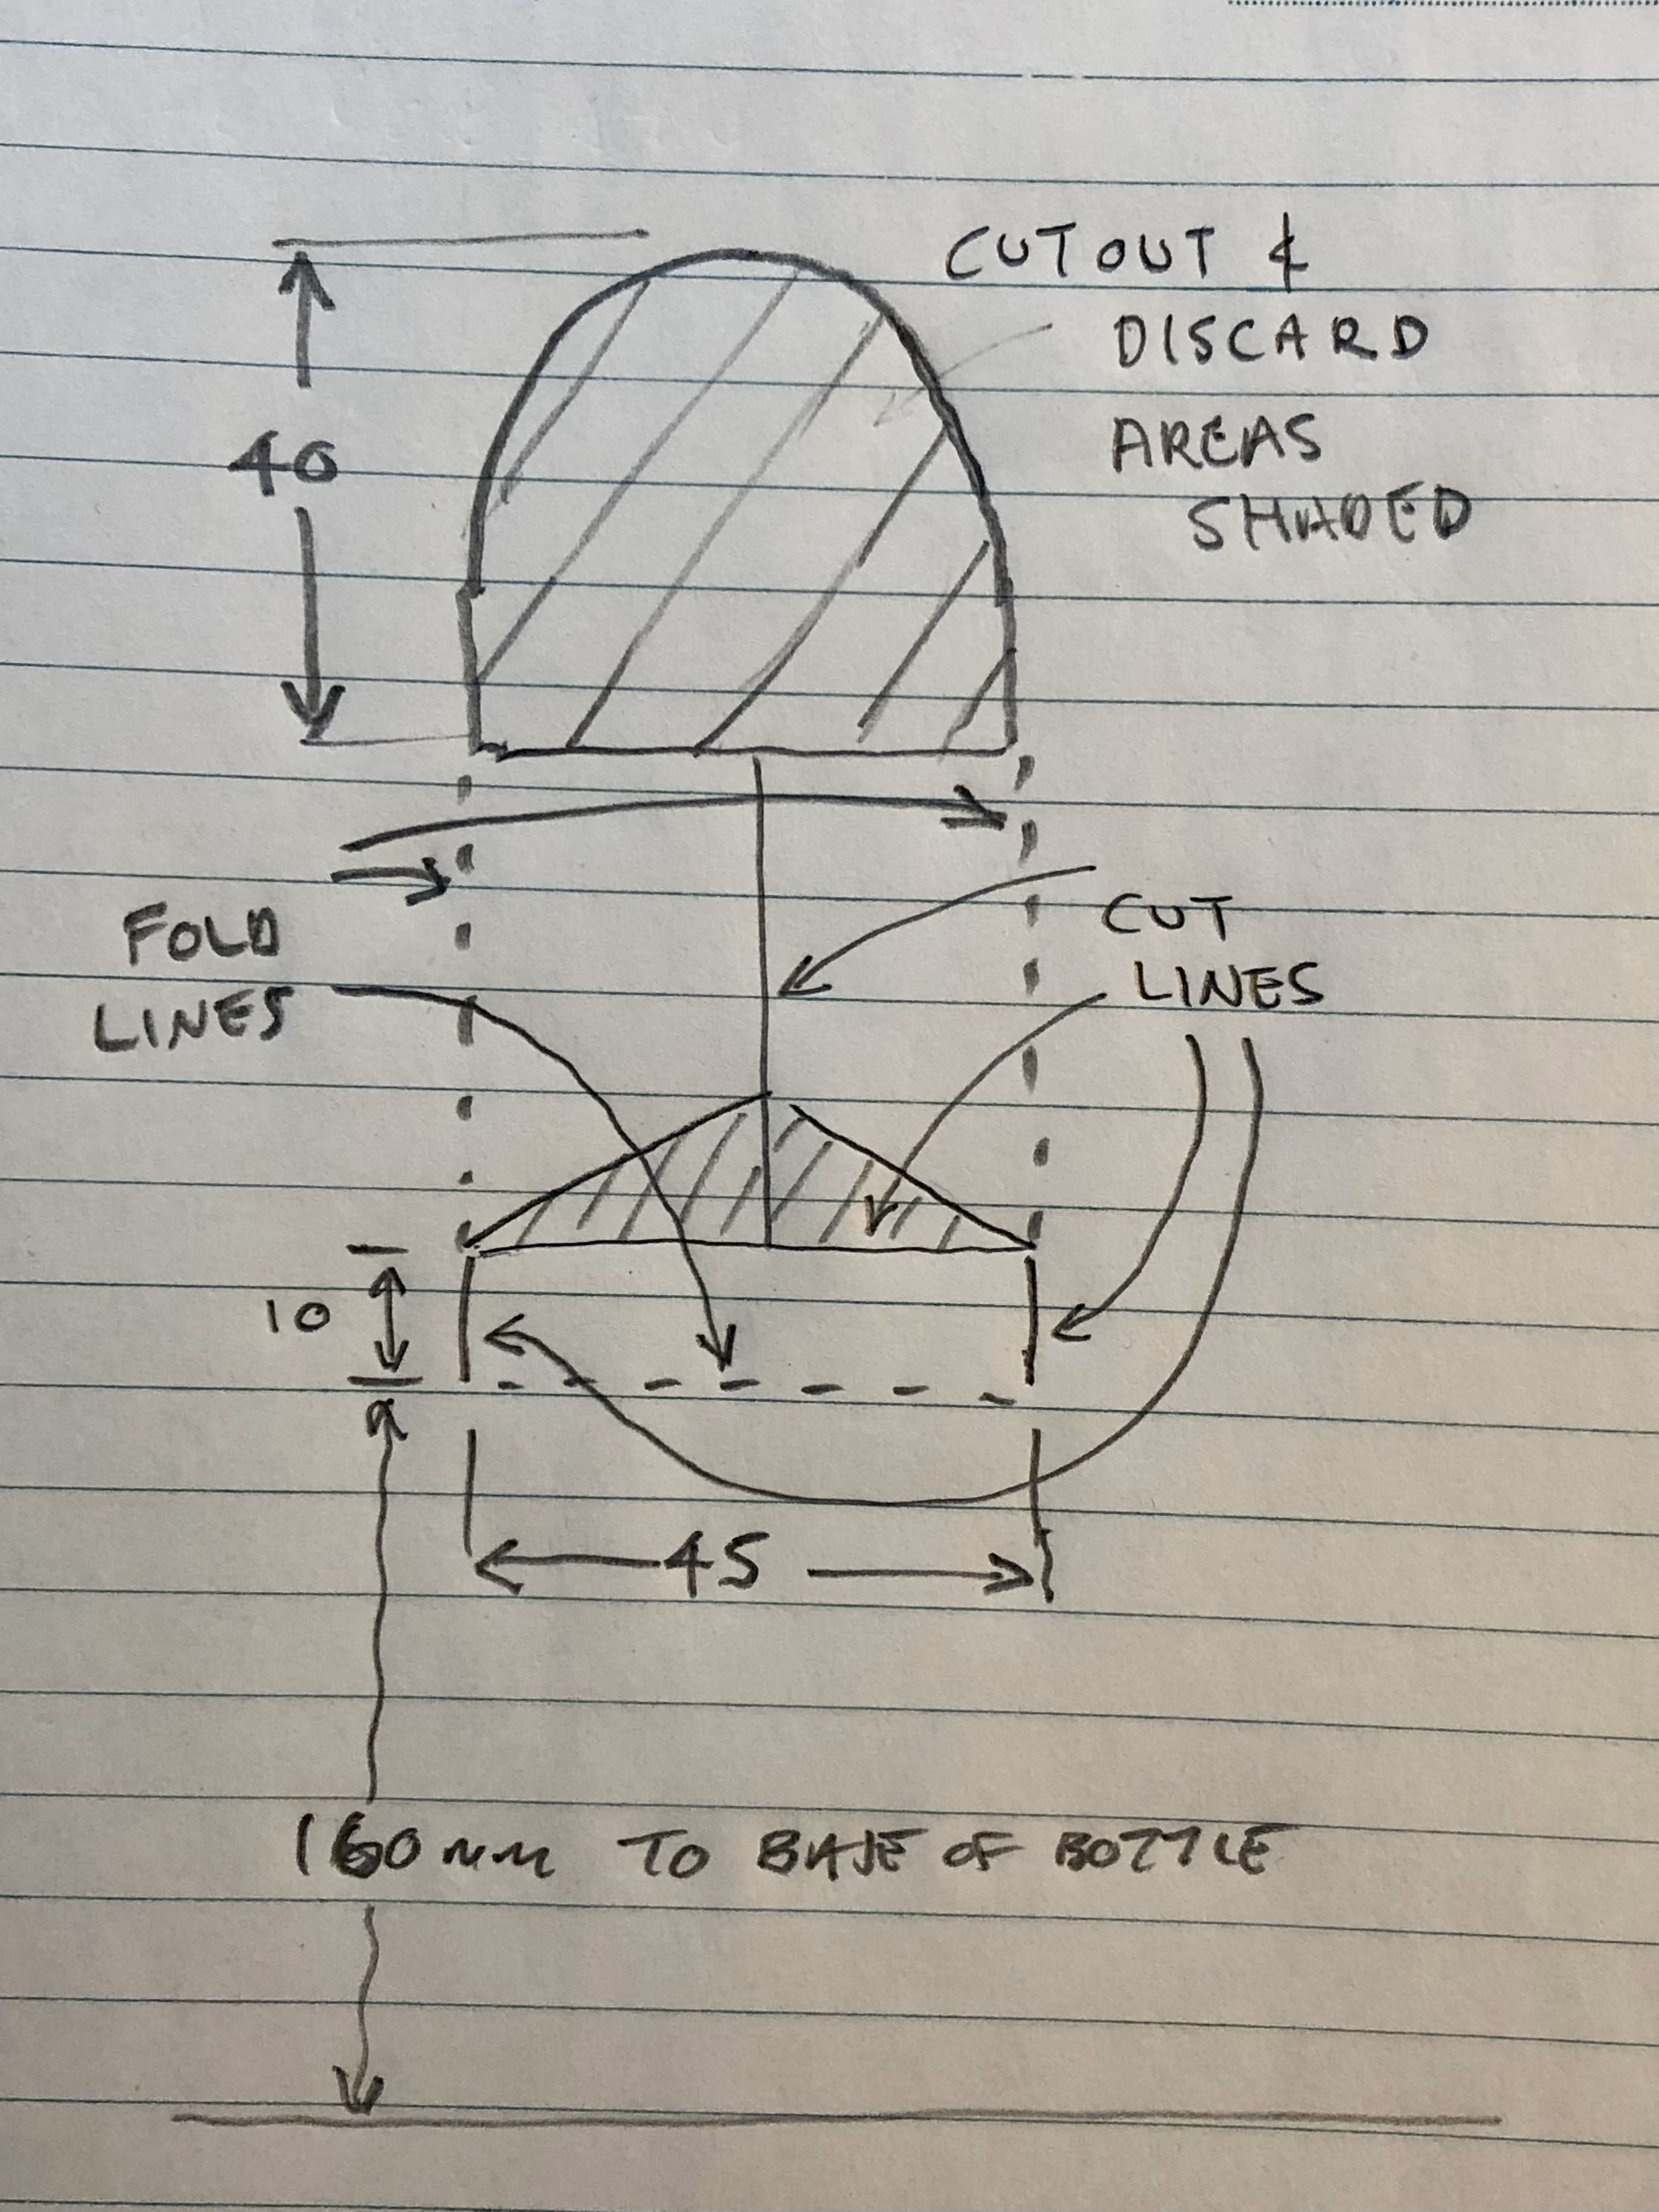 CUTOUT &
DISCARD
AREAS
SHADED
40
FOLD
LINES
CUT
LINES
10
45
160mm TO BASE OF BOTTLE